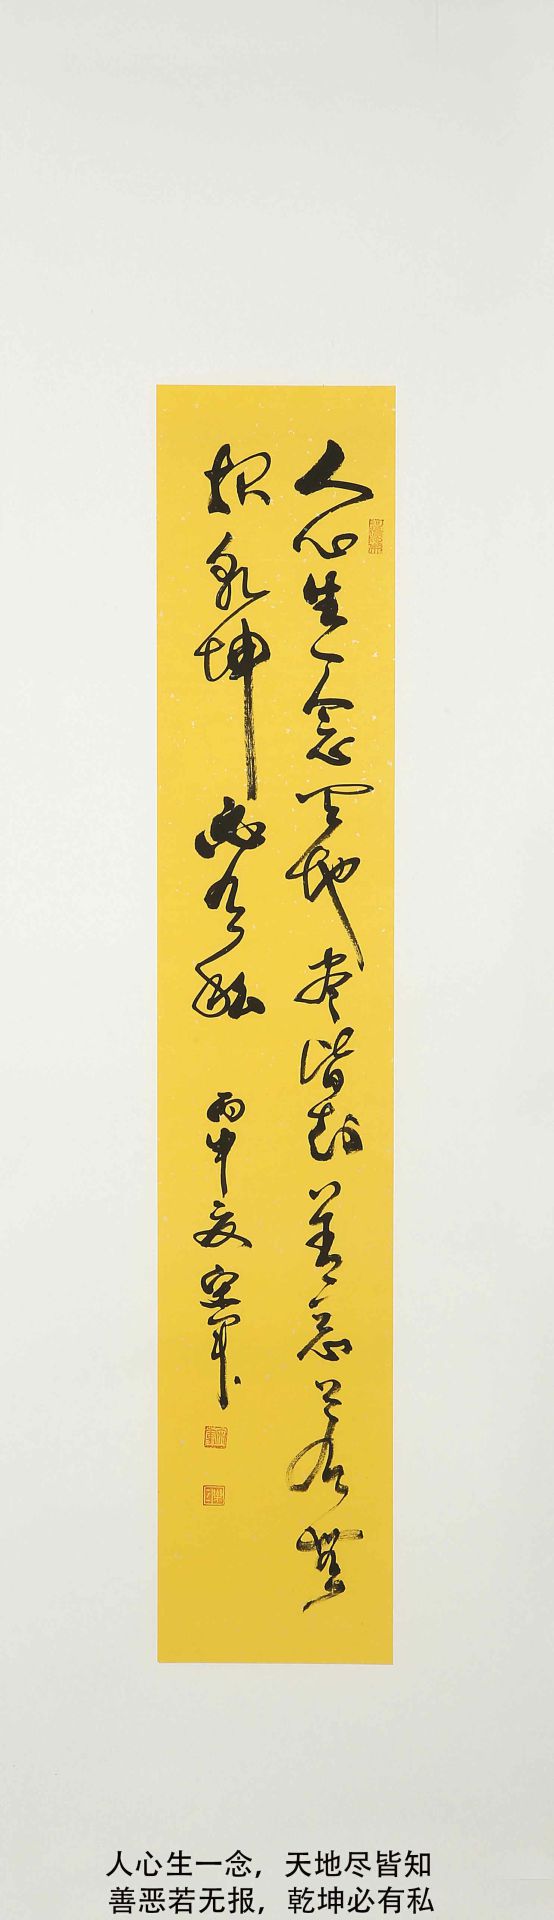 人心生一念天地尽皆知善恶若无
报乾坤必有私
丙申夏
人心生一念，天地尽皆知
善恶若无报，乾坤必有私